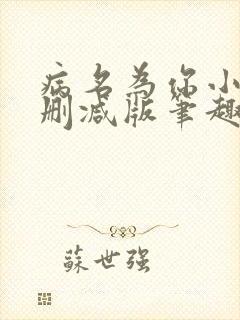 病名为你小
删减版笔趣
蘇世强